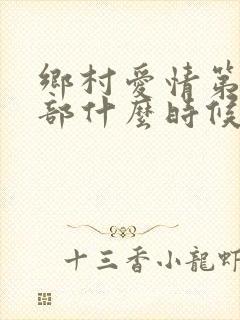 鄉村愛情第
部什麼時候
十三香小龍蝦